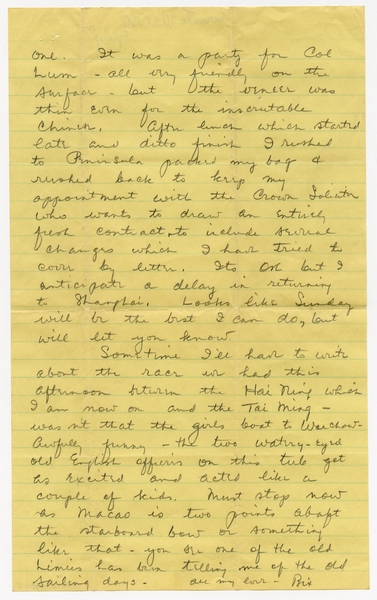 one. It was a party for Col
Lum - all very friendly on the
surface - but the veneer was
thin even for the inscrutable
Chinese. After lunch which started
late and ditto finish I rushed
to Peninsula packed my bag &
rushed back to keep my
appointment with the Crown Solicitor
who wants to draw an entirely
fresh contract to include several
changes which I have tried to
cover by letter. Its OK but I
anticipate a delay in returning
to Shanghai. Looks like Sunday
will be the best I can do, but
will let you know.
Sometime I'll have to write
about the race we had this
afternoon between the Hai Ning which
I am now on and the Tai Ming -
wasn't that the girls boat to
Awfully funny - the two watery-eyed
old English officers on this tub get
as excited and acted like a
couple of kids. Must stop now
as Macao is two points abaft
the starboard bow or something
like that - you see one of the old
Limies has been telling me of the old
sailing days - all my love - Bix